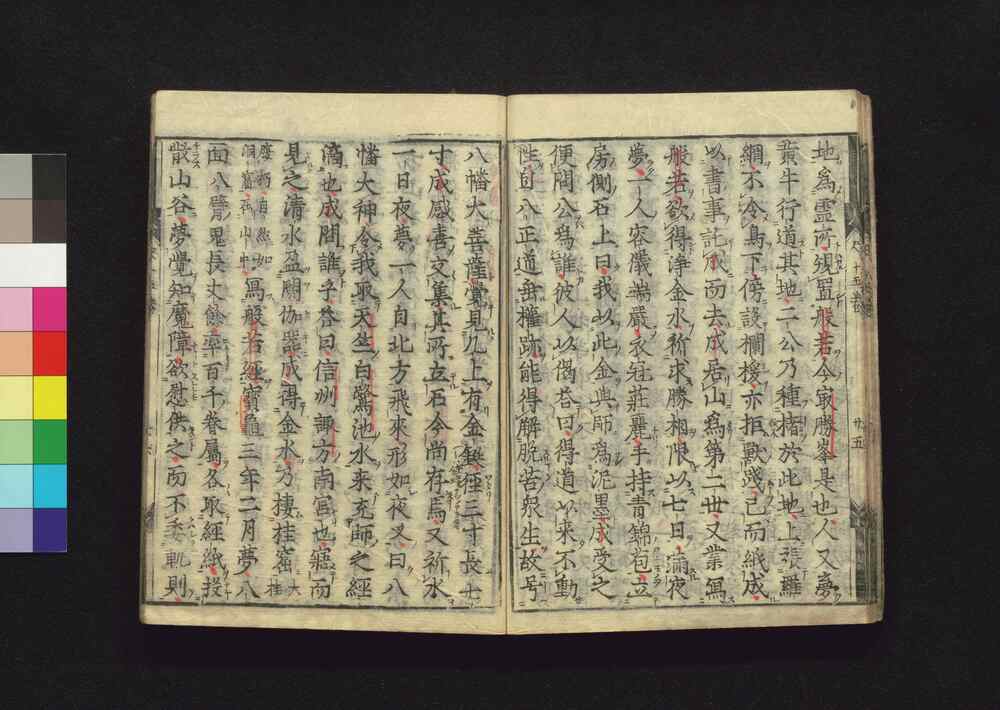 地爲靈所須置般若今嶽勝峯是也人又夢
黃牛行道其地二公乃種楮於此地上張羅
網不令鳥下傍設欄撈亦拒獸哉已而紙成
以書事託成而去成居山爲第二世又業寫
般若欲得淨金水祈求勝相限以七日滿夜
夢一人容儀端嚴衣冠莊麗手持青錦苞立
房側石上曰我以此金與師爲泥墨成受之
便問公爲誰彼人以偈荅曰得道以來不動
性自八正道垂權跡能得解脫苦衆生故号
八幡大菩薩覺見几上有金鋌徑三寸長七
寸成感喜交集其所立石今尚存焉又祈水
一日夜夢一人自北方飛來形如夜叉曰八
幡大神令我取天竺白鷺池水来充師之經
滴也成問誰乎荅曰信州諏方南宮也寤而
見之清水盈閼伽器成得金水乃棲桂窟
大桂
廢朽自然如
洞窟在山中
寫般若經寶龜三年二月夢八
面八臂鬼長丈餘率百千眷屬各取經紙投
散山谷夢覺知魔障欲慰供之而不委軌則
十五卷
廿五